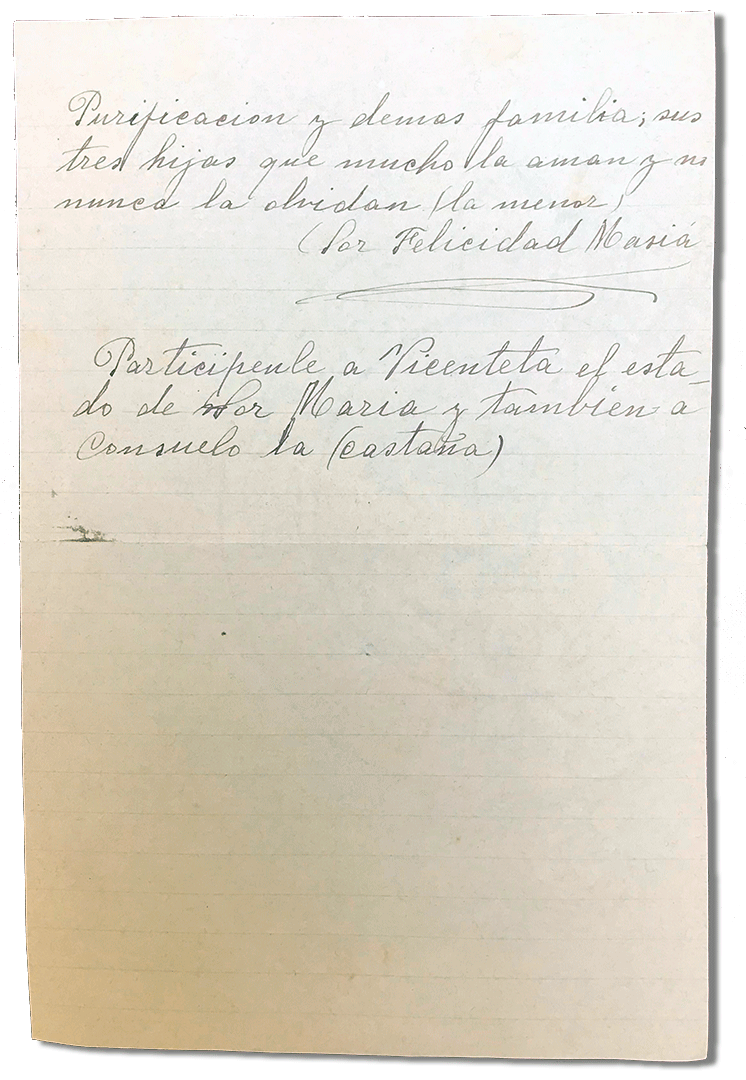 Purificacion y demas familia; sus
tres hijas que mucho la aman y no
nunca la olvidan (la menor)
Sor Felicidad Masiá
Participenle a Vicenteta el esta-
do de Sor Maria y tambien a
Consuelo la (castaña)